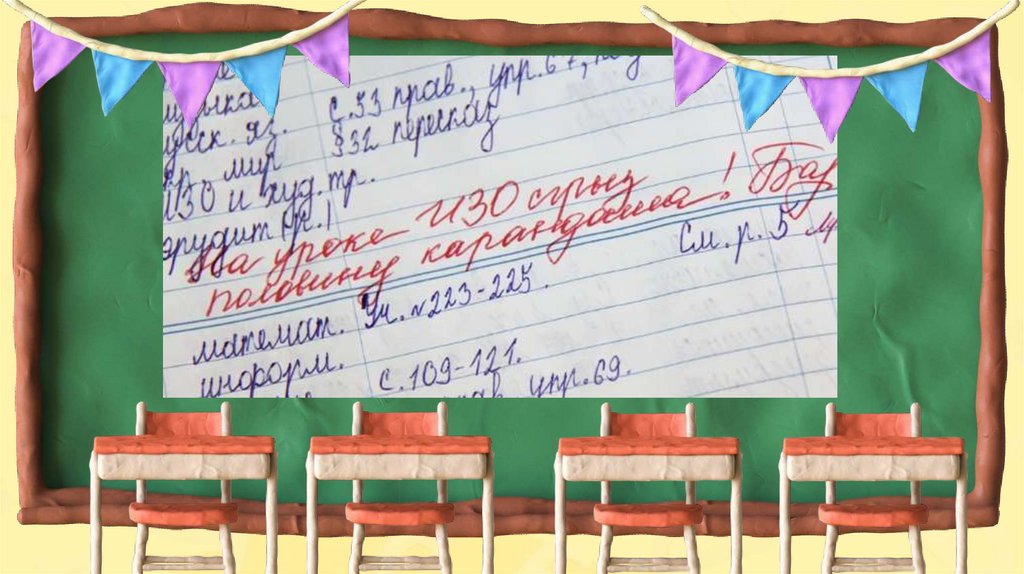 с.53 прав., упр.67,
русск. яз. §32 пересказ
мир
ИЗО и худ.тр.
эрудит
На уроке ИЗО сгрыз
половину карандаша! Бар
См. р. 5
математ. Уч. №223-225.
информ. с.109-121.
упр.69.